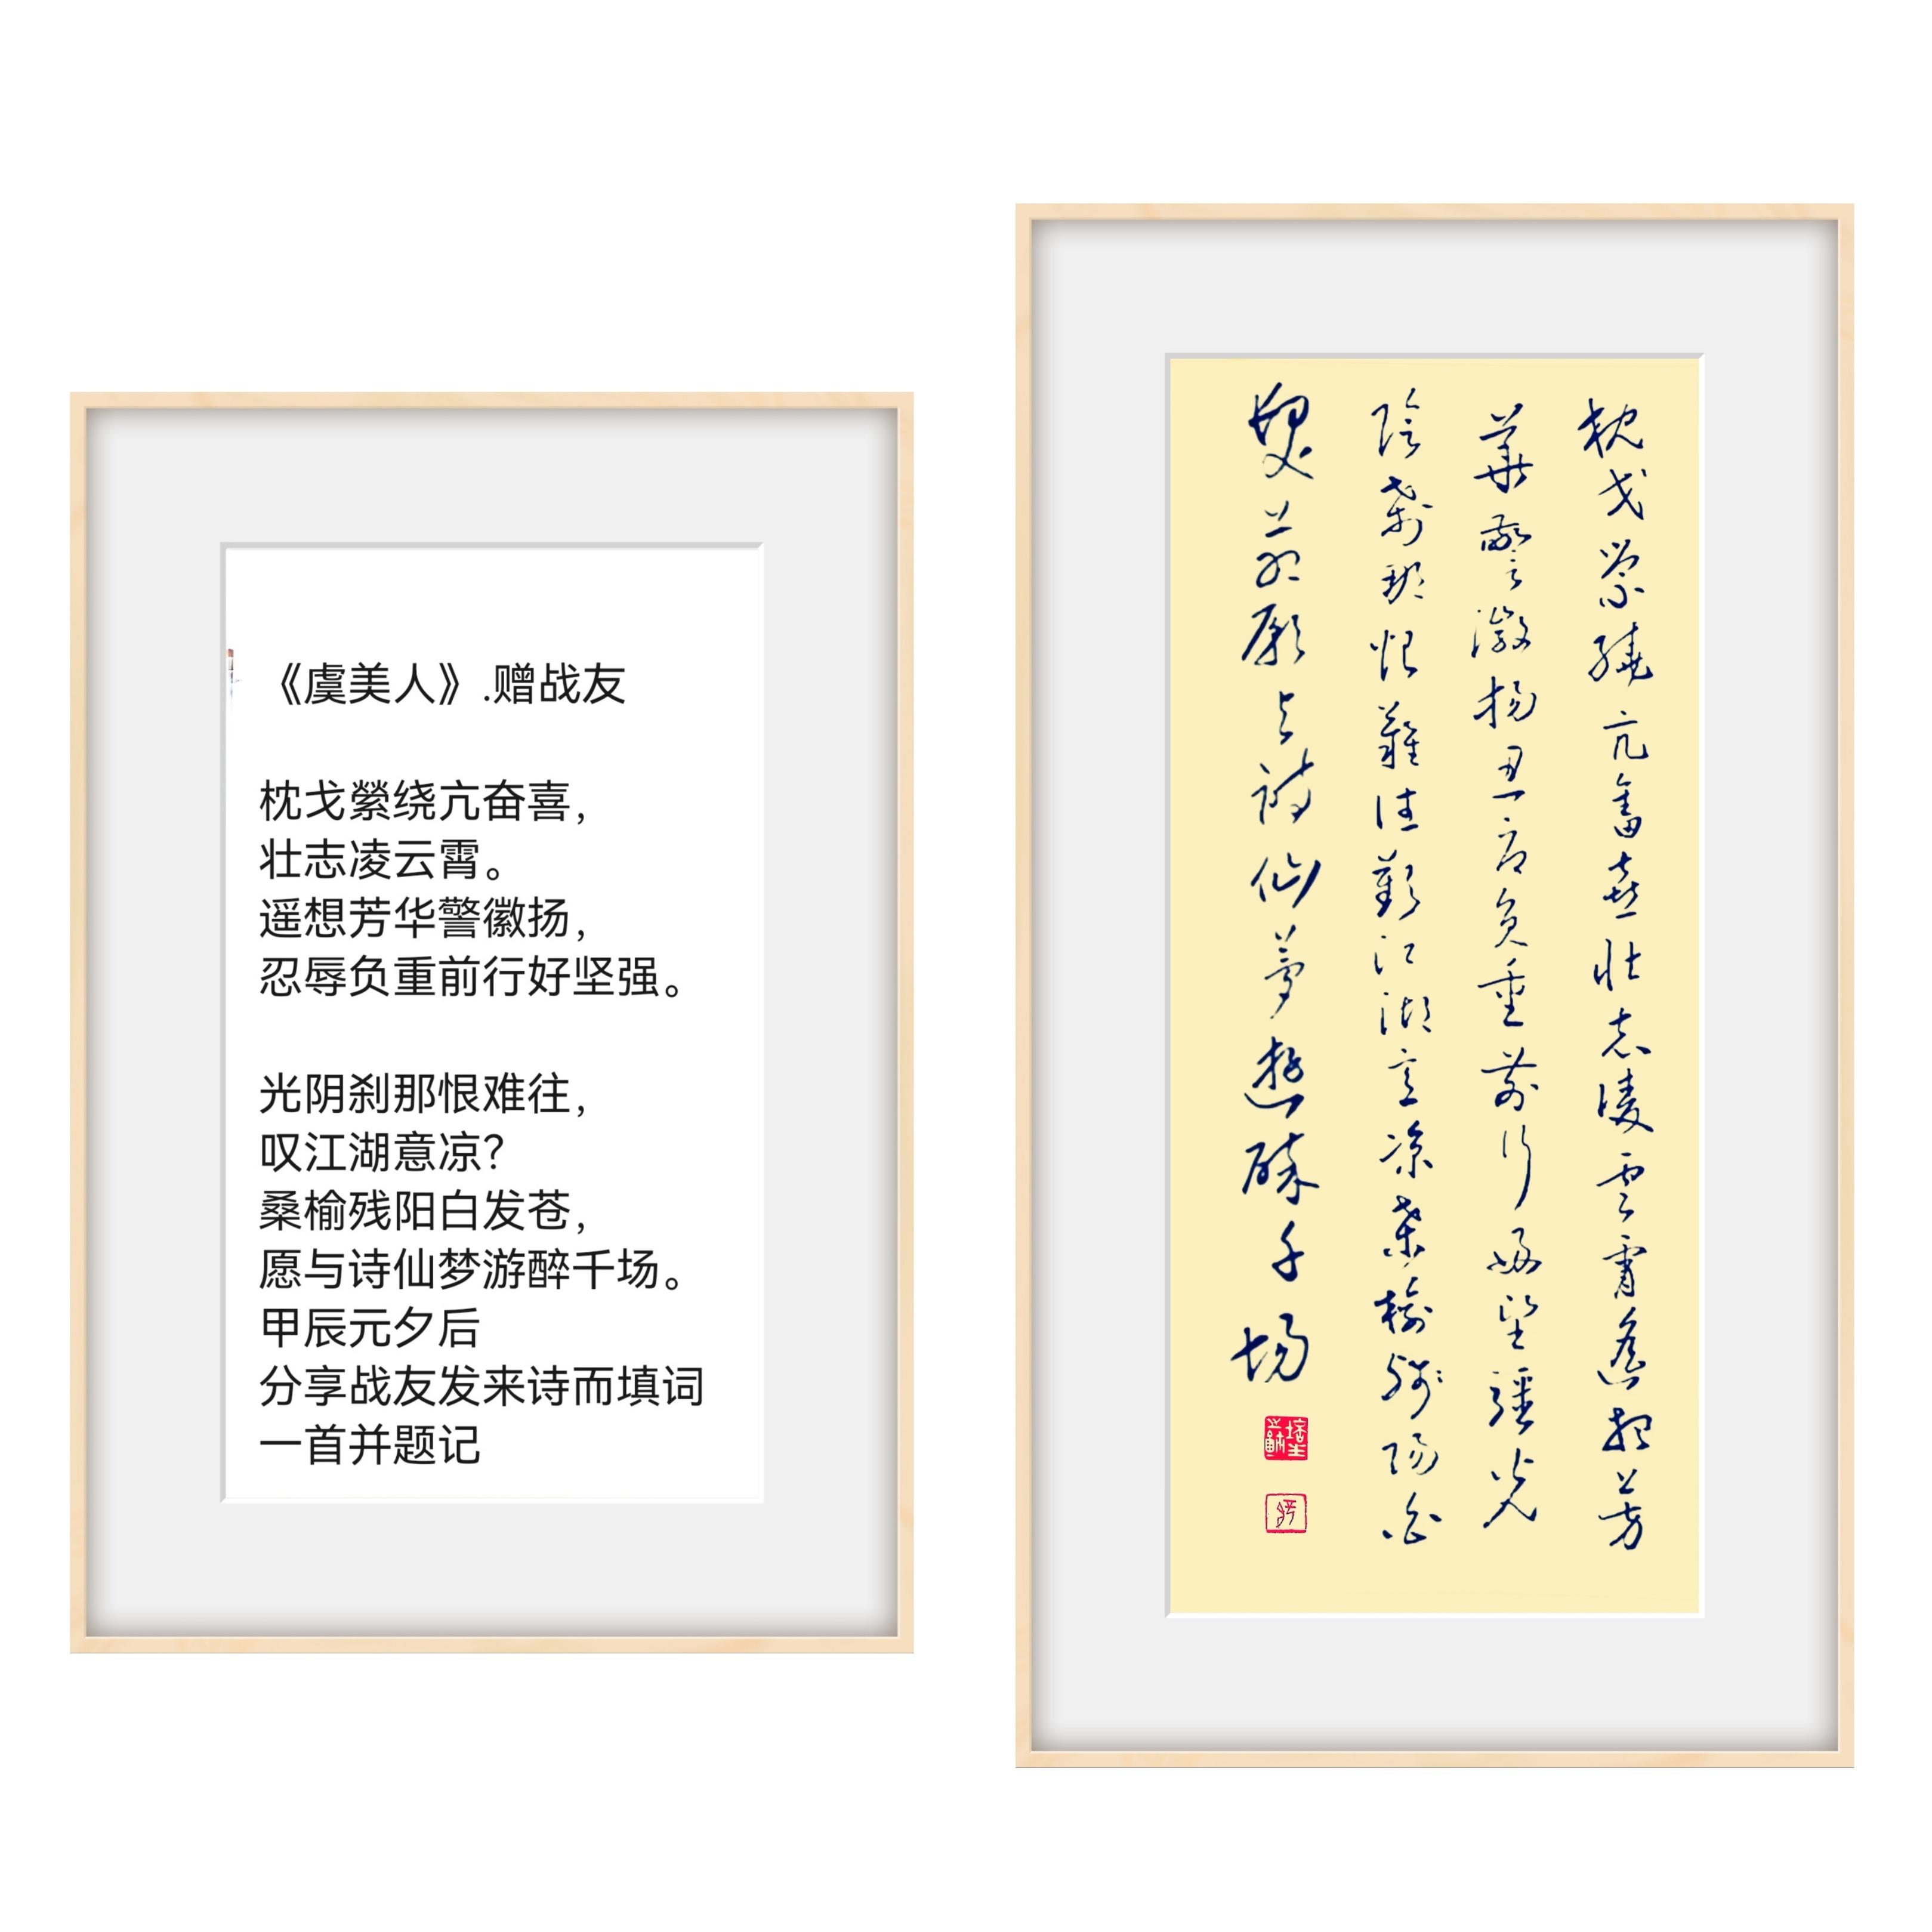 《虞美人》.赠战友
枕戈萦绕亢奋喜，
壮志凌云霄。
遥想芳华警徽扬，
忍辱负重前行好坚强。
光阴刹那恨难往，
叹江湖意凉？
桑榆残阳白发苍，
愿与诗仙梦游醉千场。
甲辰元夕后
分享战友发来诗而填词
一首并题记
枕戈縈繞亢奮喜壯志凌雲霄遙想芳
華警徽揚忍辱負重前行好堅疆光
陰刹那恨難往歎江湖意涼桑榆殘陽白
髮蒼願与詩仙夢遊醉千場